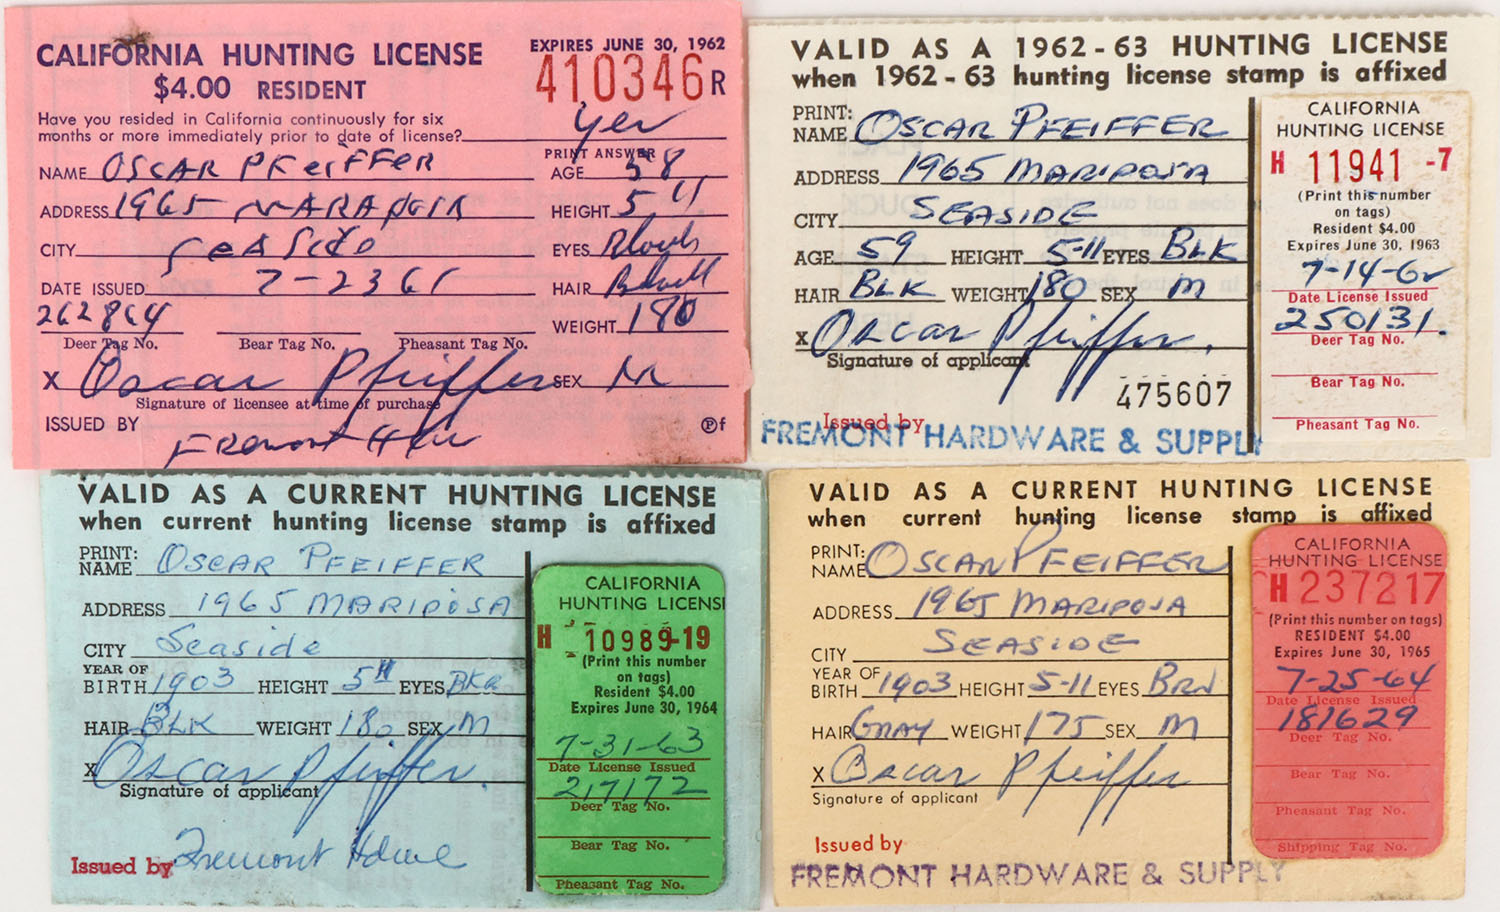 CALIFORNIA HUNTING LICENSE
$4.00 RESIDENT
EXPIRES JUNE 30, 1962
410346 R
Have you resided in California continuously for six
months or more immediately prior to date of license? Yes
PRINT ANSWER
NAME OSCAR PFEIFFER
AGE 58
ADDRESS 1965
HEIGHT 5 11
CITY SEASIDE
EYES
DATE ISSUED 7-23 61
HAIR
262864
WEIGHT 180
Deer Tag No. Bear Tag No. Pheasant Tag No.
X Oscar Pfeiffer SEX M
Signature of licensee at time of purchase
ISSUED BY Fremont Hdwe
Pf
VALID AS A 1962-63 HUNTING LICENSE
when 1962-63 hunting license stamp is affixed
PRINT:
NAME OSCAR PFEIFFER
ADDRESS 1965 MARIPOSA
CITY SEASIDE
AGE 59 HEIGHT 5-11 EYES BLK
HAIR BLK WEIGHT 180 SEX M
X Oscar Pfeiffer.
Signature of applicant
475607
Issued by
FREMONT HARDWARE & SUPPLY
CALIFORNIA
HUNTING LICENSE
H 11941-7
(Print this number
on tags)
Resident $4.00
Expires June 30, 1963
7-14-62
Date License Issued
250131.
Deer Tag No.
Bear Tag No.
Pheasant Tag No.
VALID AS A CURRENT HUNTING LICENSE
when current hunting license stamp is affixed
PRINT:
NAME OSCAR PFEIFFER
ADDRESS 1965 MARIPOSA
CITY Seaside
YEAR OF
BIRTH 1903 HEIGHT 5 11 EYES
HAIR BLK WEIGHT 180 SEX M
X Oscar Pfeiffer.
Signature of applicant
Issued by Fremont Hdwe
CALIFORNIA
HUNTING LICENSE
H 10989-19
(Print this number
on tags)
Resident $4.00
Expires June 30, 1964
7-31-63
Date License Issued
217172
Deer Tag No.
Bear Tag No.
Pheasant Tag No.
VALID AS A CURRENT HUNTING LICENSE
when current hunting license stamp is affixed
PRINT:
NAME OSCAR PFEIFFER
ADDRESS 1965 MARIPOSA
CITY SEASIDE
YEAR OF
BIRTH 1903 HEIGHT 5-11 EYES BRN
HAIR GRAY WEIGHT 175 SEX M
X Oscar Pfeiffer
Signature of applicant
Issued by
FREMONT HARDWARE & SUPPLY
CALIFORNIA
HUNTING LICENSE
H 237217
(Print this number on tags)
RESIDENT $4.00
Expires June 30, 1965
7-25-64
Date License Issued
181629
Deer Tag No.
Bear Tag No.
Pheasant Tag No.
Shipping Tag No.